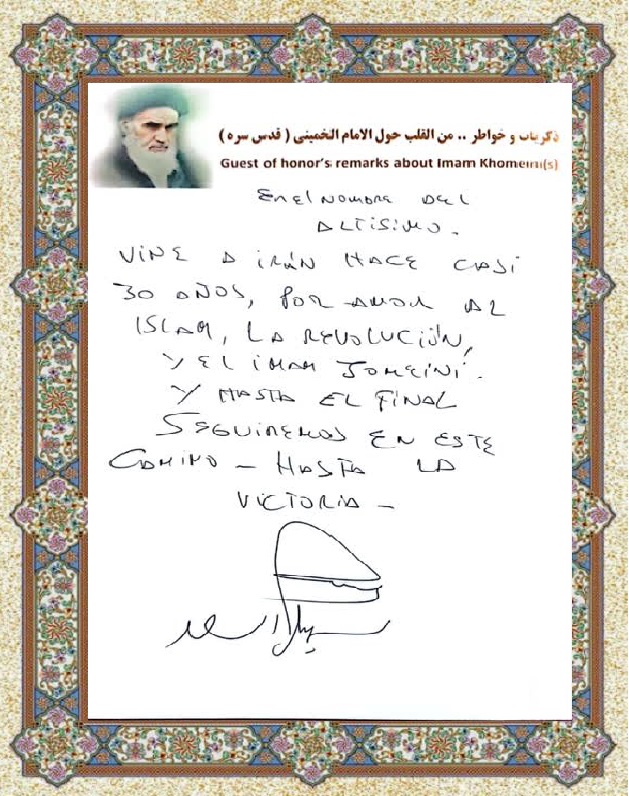 ذكريات و خواطر .. من القلب حول الامام الخميني ( قدس سره )
Guest of honor's remarks about Imam Khomeini(s)
EN el NOMBRE DEL
ALTÍSIMO.
VINE A IRÁN HACE CASI
30 AÑOS, POR AMOR AL
ISLAM, LA REVOLUCIÓN,
Y EL IMAM JOMEINÍ.
Y HASTA EL FINAL
SEGUIREMOS EN ESTE
CAMINO – HASTA LA
VICTORIA –
سهيل اسعد